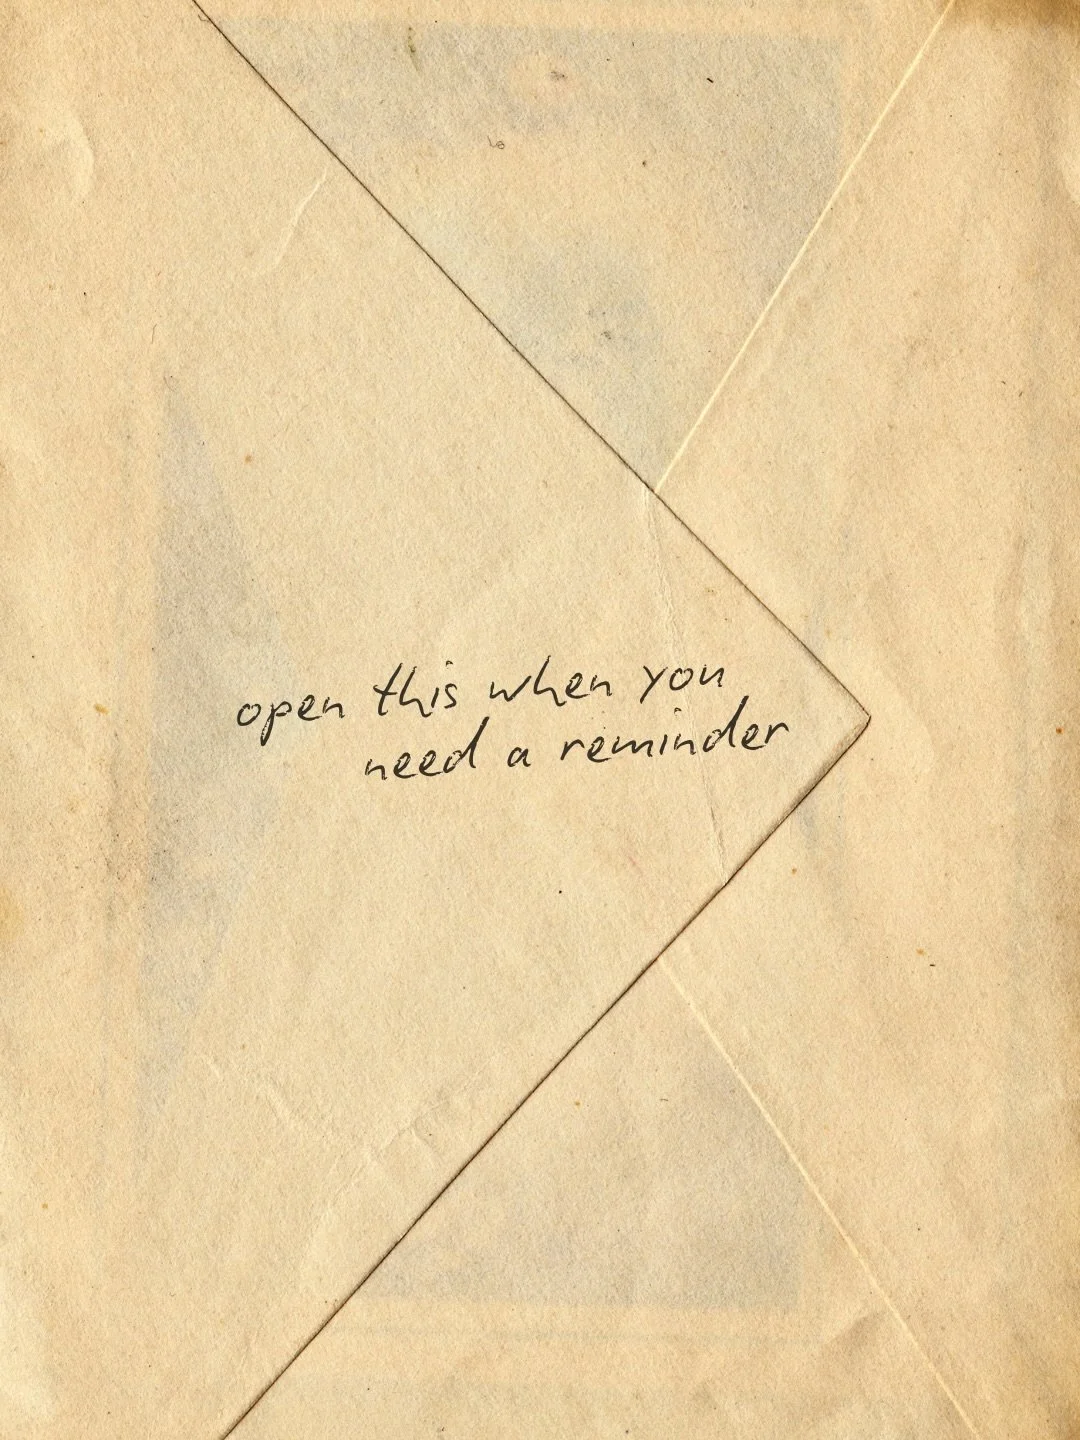 open this when you
need a reminder